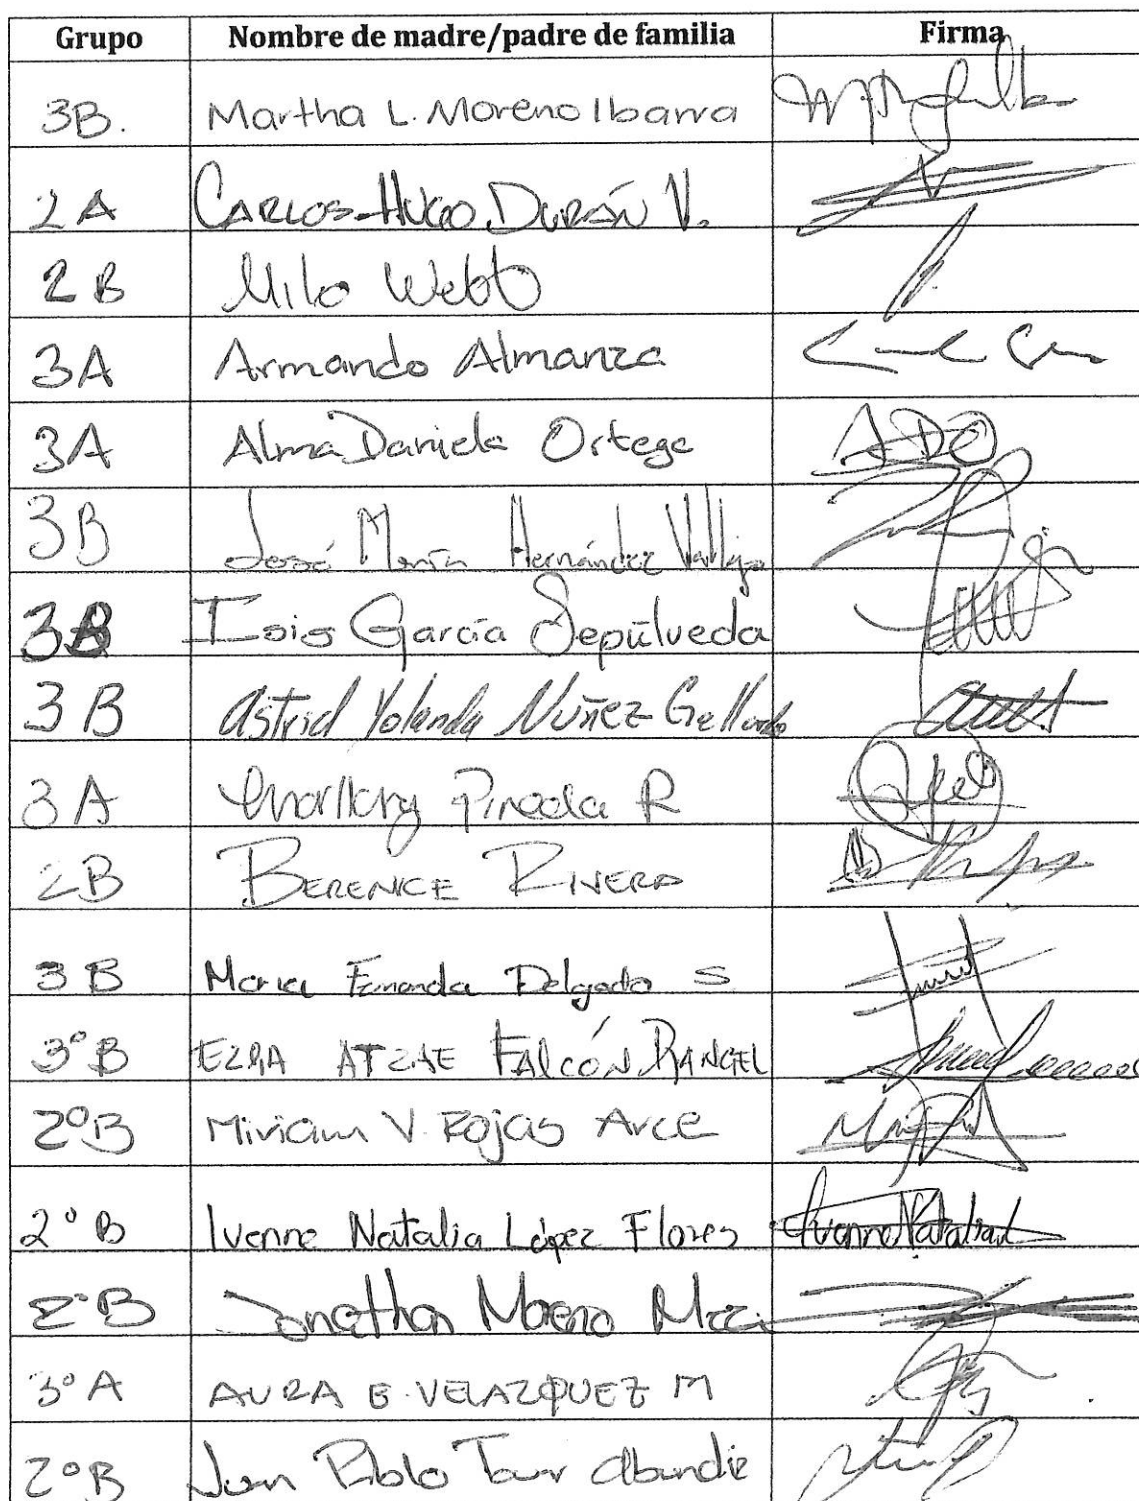 Grupo Nombre de madre/padre de familia Firma
3B. Martha L. Moreno Ibarra
2A CARLOS HUGO DURÁN V.
2B Milo Webb
3A Armando Almanza
3A Alma Daniela Ortega ADO
3B José María Hernández Vallejo
3B Isis García Sepúlveda
3B Astrid Yolanda Nuñez Gallardo
3A Pineda R
2B BERENICE RIVERA
3B Maria Fernanda Delgado S
3°B EZRA ATZAE FALCÓN RANGEL
2°B Miriam V. Rojas Arce
2°B Ivonne Natalia López Flores Ivonne Natalia
2°B Jonathan Moreno
3°A AURA E. VELAZQUEZ M
2°B Juan Pablo